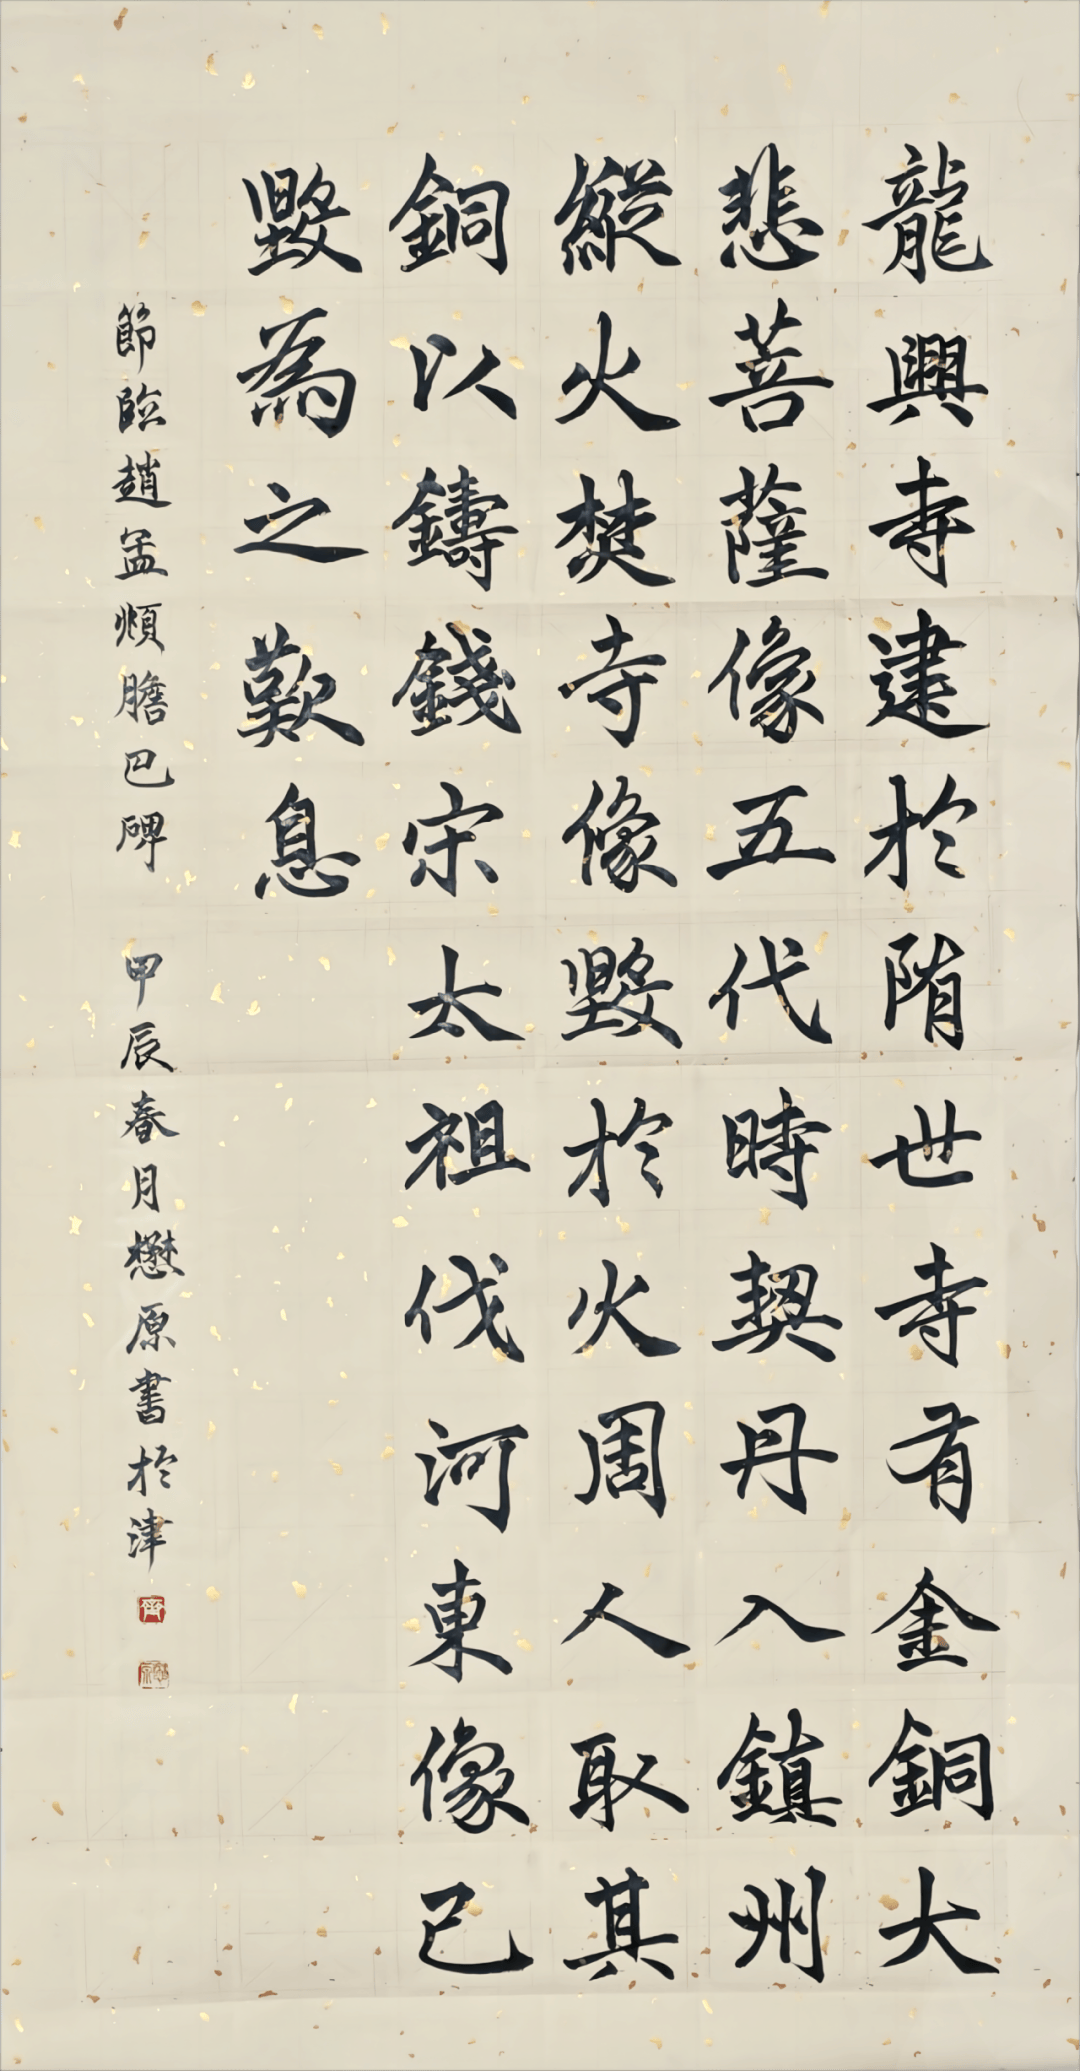 龍興寺建於隋世寺有金銅大
悲菩薩像五代時契丹入鎮州
縱火焚寺像毀於火周人取其
銅以鑄錢宋太祖伐河東像已
毀為之歎息
節臨趙孟頫膽巴碑 甲辰春月懋原書於津